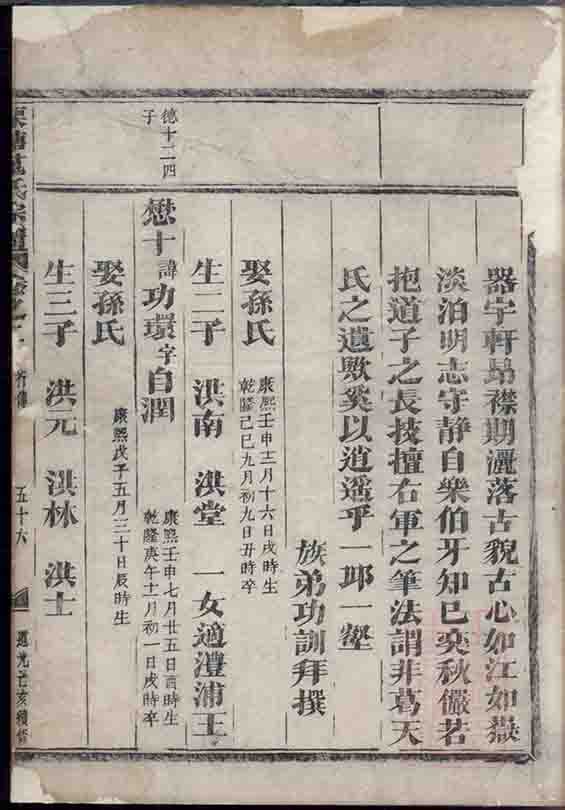 器宇軒昂襟期灑落古貌古心如江如嶽
淡泊明志守静自樂伯牙知已奕秋儼若
抱道子之長技擅右軍之筆法謂非葛天
氏之遺歟奚以逍遥乎一邱一壑
族弟功訓拜撰
娶孫氏
康熙壬申十二月十六日戌時生
乾隆己巳九月初九日丑時卒
生二子 洪南 洪堂 一女適澧浦王
德十二四
子
懋十諱功環字自潤
康熙壬申七月廿五日酉時生
乾隆庚午十一月初一日戌時卒
娶孫氏
康熙戊子五月三十日辰時生
生三子 洪元 洪林 洪士
氏宗譜
行傳
五十六
道光 亥續修